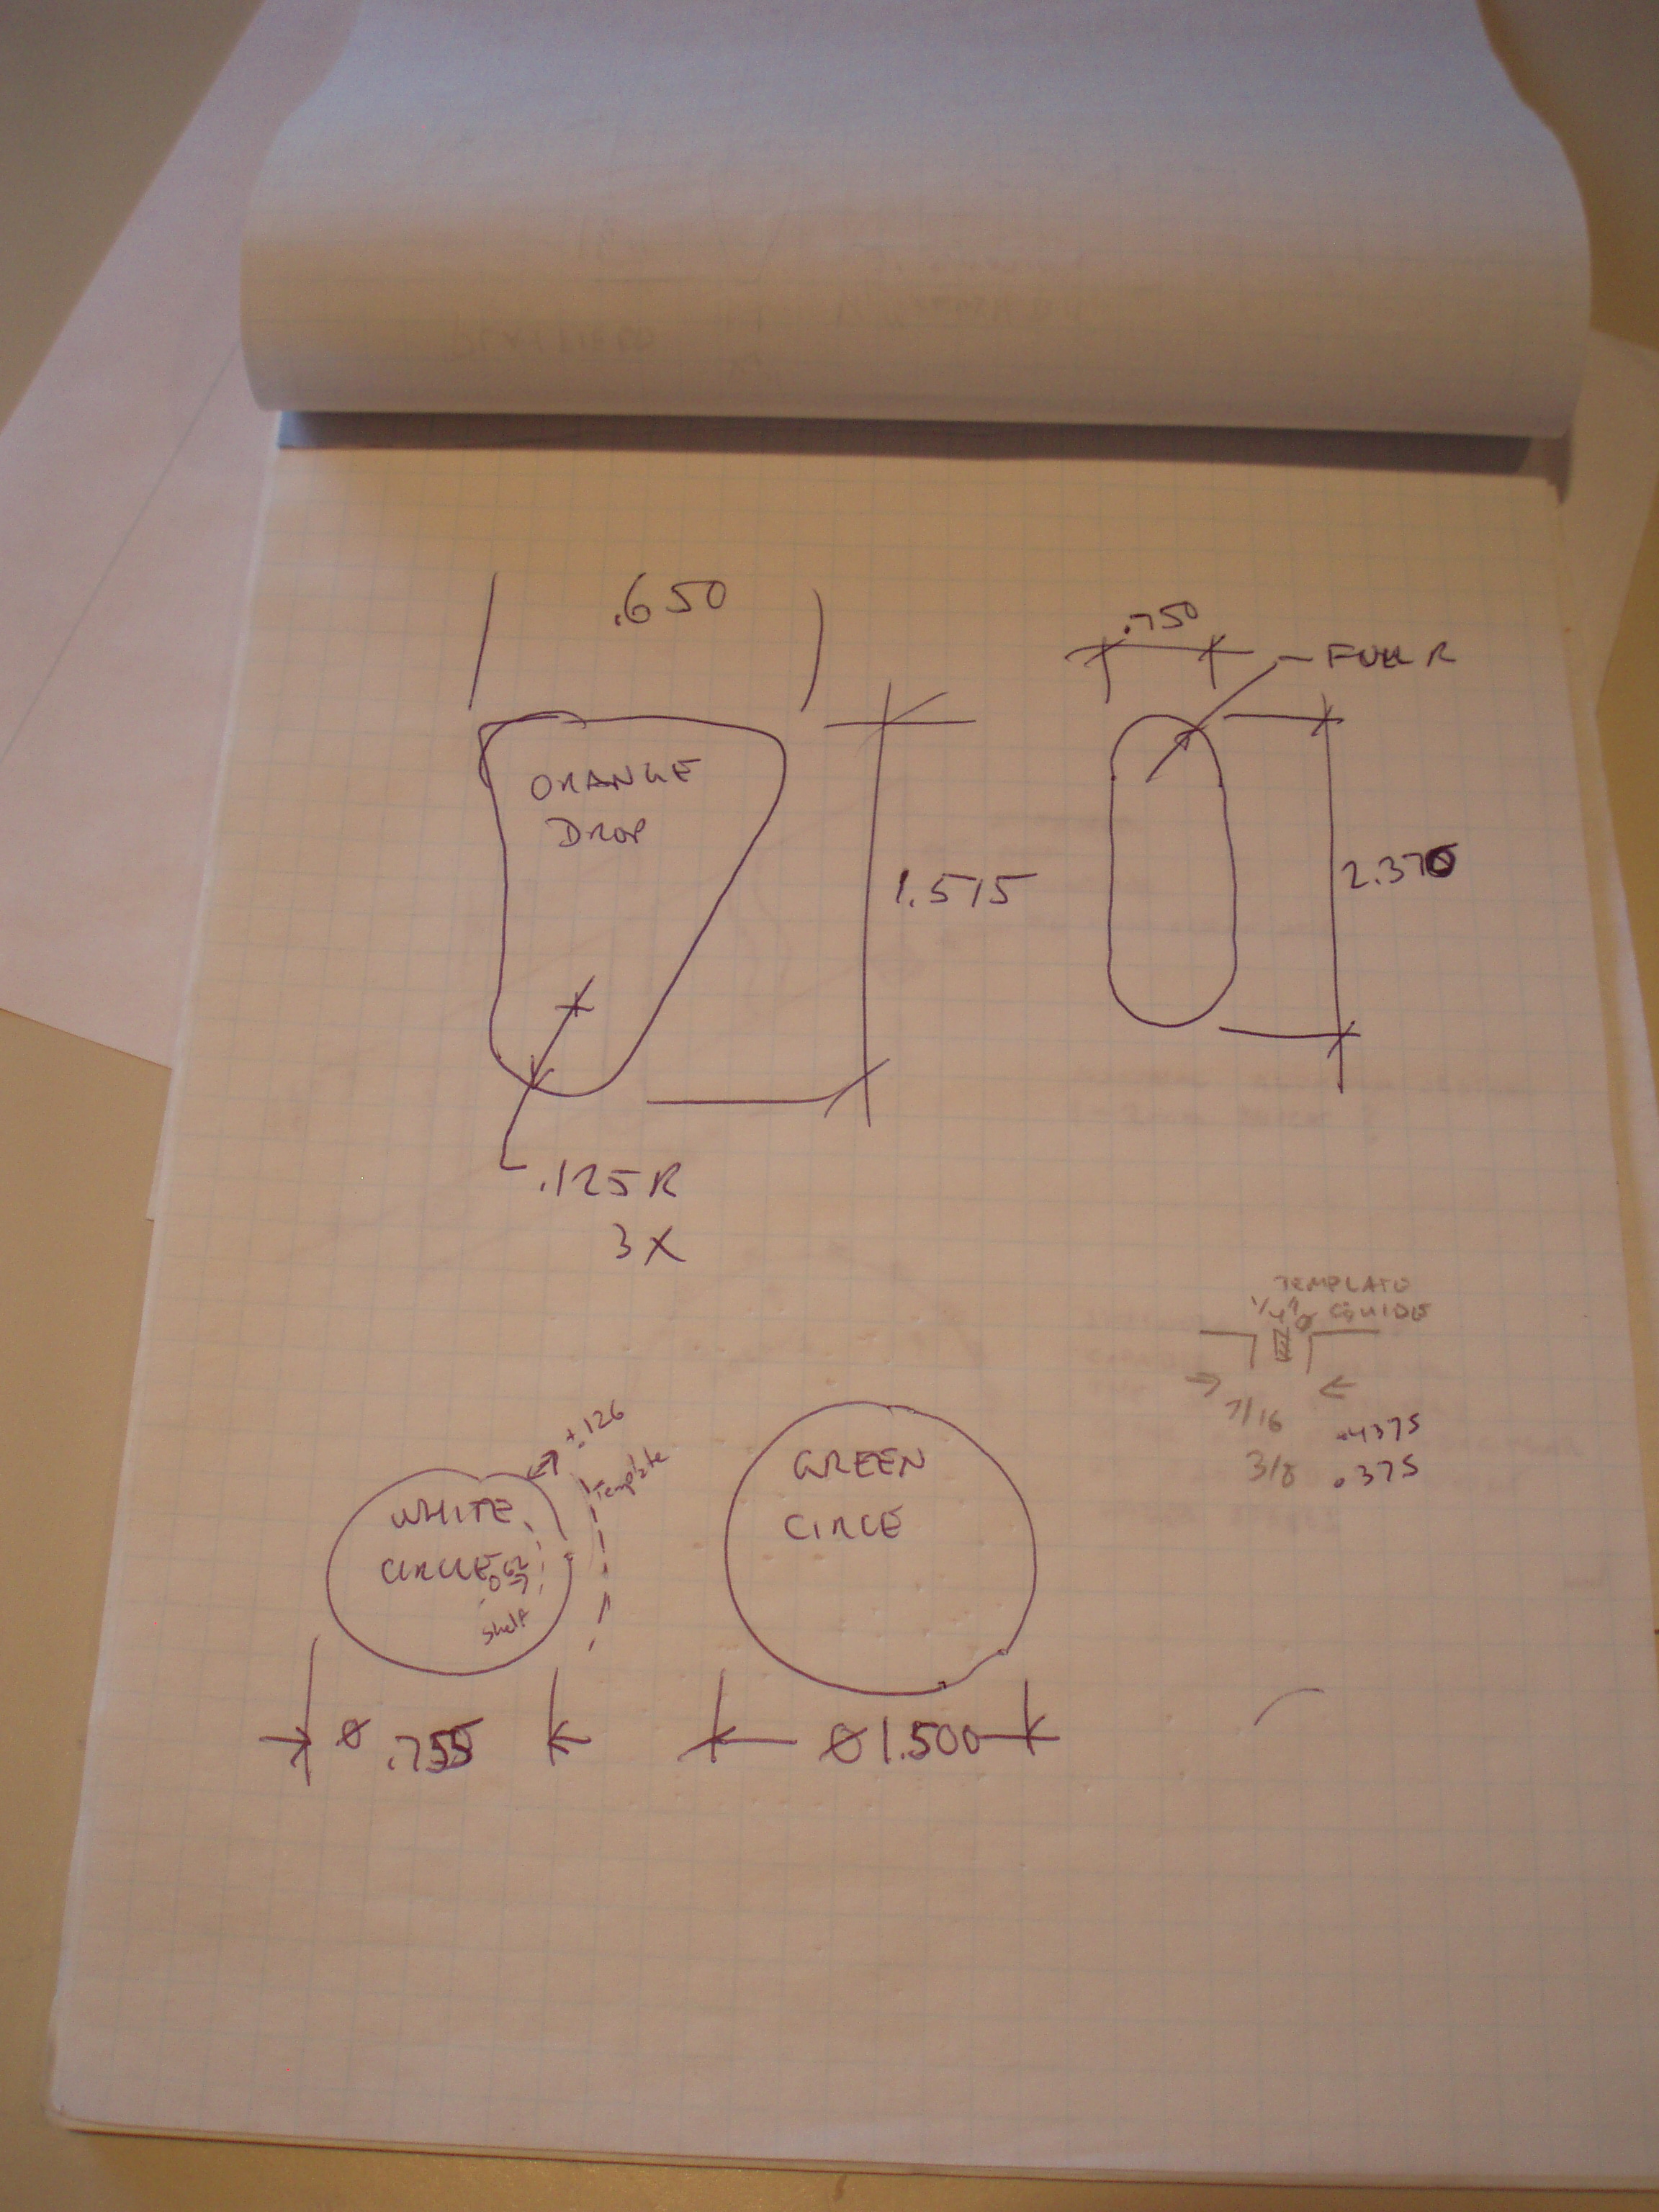 .650
.750
FULL R
ORANGE
DROP
1.575
2.370
.125 R
3X
TEMPLATE
1/4" Ø GUIDE
7/16 .4375
3/8 .375
±.126
Template
WHITE
CIRCLE
.062
Shelf
GREEN
CIRCLE
Ø .755
Ø1.500